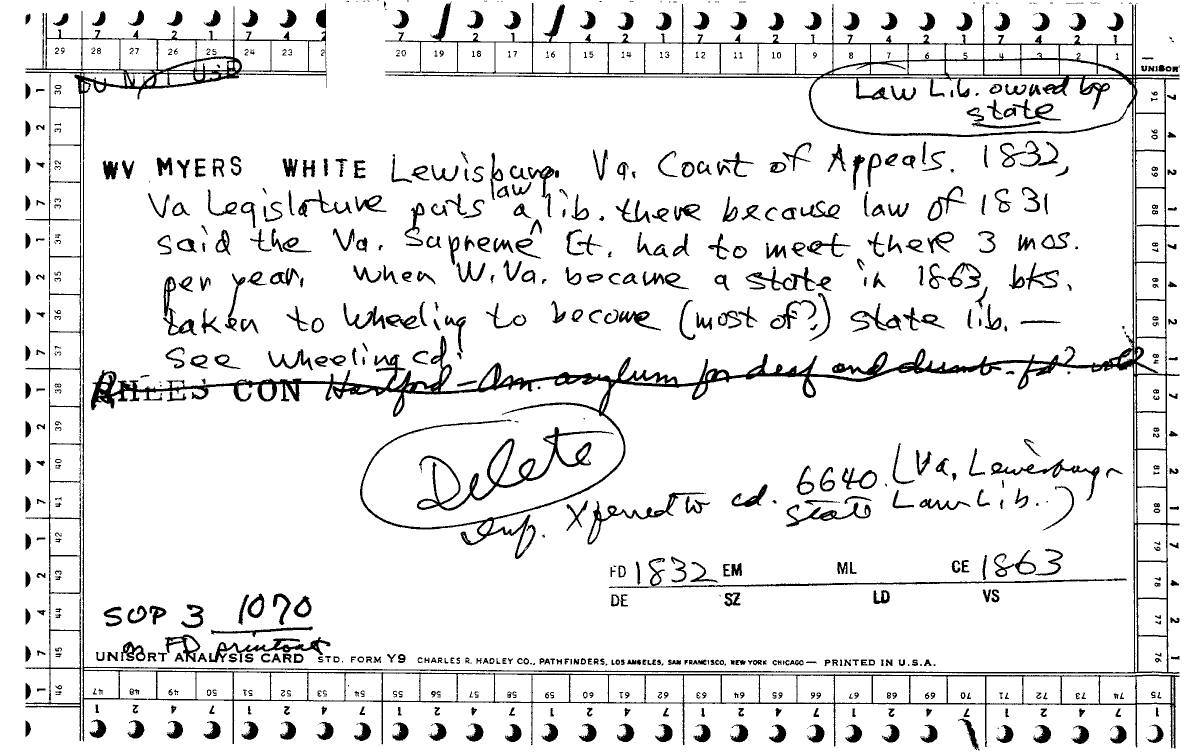 29 28 27 26 25 24 23 20 19 18 17 16 15 14 13 12 11 10 9 8 7 6 5 4 3 2 1
DO NOT USE
UNISORT
Law Lib. owned by
state
WV MYERS WHITE Lewisburg. Va. Court of Appeals. 1832,
Va Legislature puts a law lib. there because law of 1831
said the Va. Supreme Ct. had to meet there 3 mos.
per year. When W.Va. became a state in 1863, bks.
taken to Wheeling to become (most of?) state lib. —
See Wheeling cd.
RHEES CON Hartford - Am. asylum for deaf and dumb - fd?
Delete
inf. Xferred to cd. 6640 (Va, Lewisburg
state Law Lib.)
FD 1832 EM ML CE 1863
DE SZ LD VS
SOP 3 1070
on FD printout
UNISORT ANALYSIS CARD STD. FORM Y9 CHARLES R. HADLEY CO., PATHFINDERS, LOS ANGELES, SAN FRANCISCO, NEW YORK CHICAGO — PRINTED IN U.S.A.
47 48 49 50 51 52 53 54 55 56 57 58 59 60 61 62 63 64 65 66 67 68 69 70 71 72 73 74 75